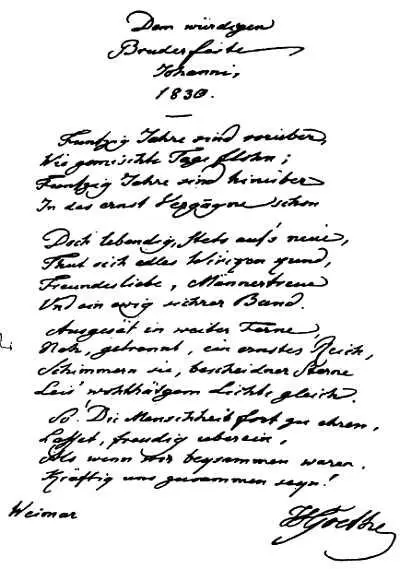 Dem würdigen
Bruderfeste
Johanni,
1830.
Funfzig Jahre sind vorüber,
Wie gemischte Tage flohn;
Funfzig Jahre sind hinüber
In das ernst Vergangne schon
Doch lebendig, stets auf's neue,
Thut sich edles Wirken kund,
Freundesliebe, Männertreue
Und ein ewig sichrer Bund.
Ausgesät in weiter Ferne,
Nah, getrennt, ein ernstes Reich,
Schimmern sie, bescheidner Sterne
Leis' wohlthätgem Lichte gleich.
So! Die Menschheit fort zu ehren,
Lasset, freudig überein,
Als wenn wir beysammen wären,
Kräftig uns zusammen seyn!
Weimar
JWGoethe